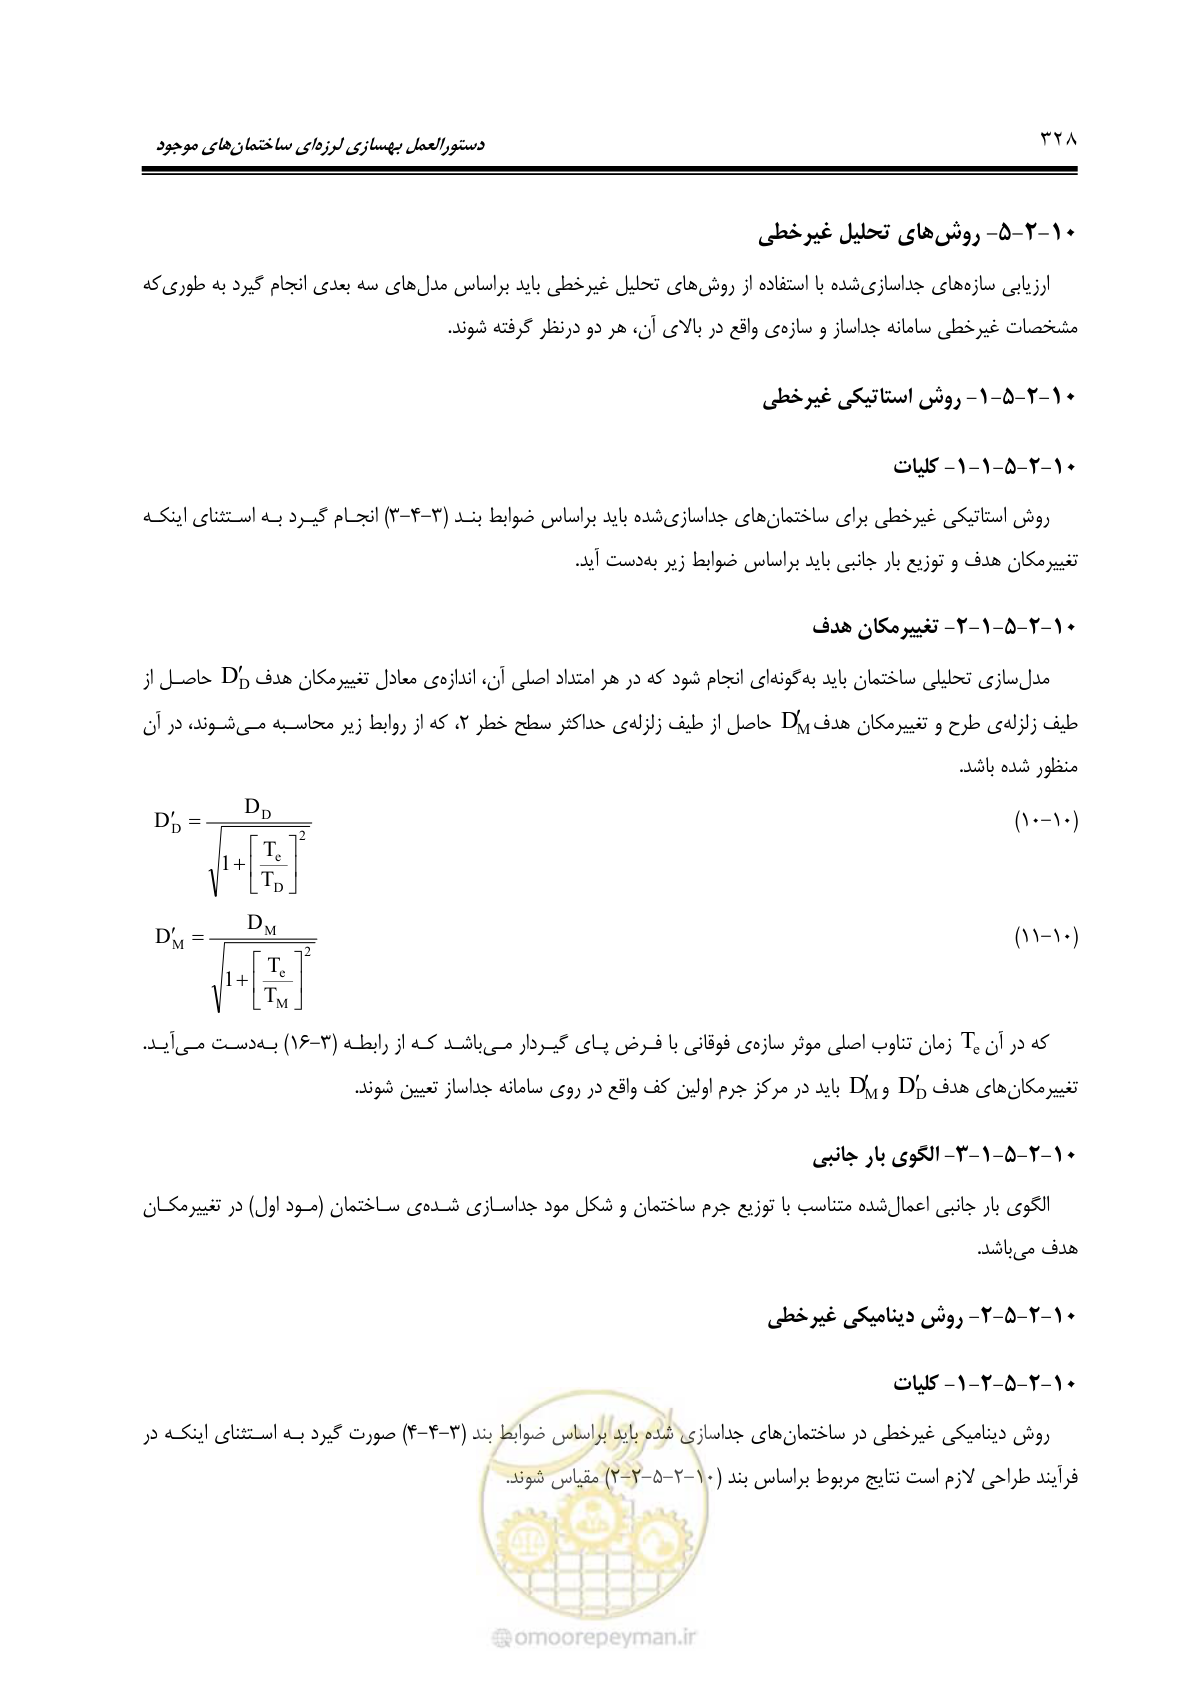 ۳۲۸
دستورالعمل بهسازی لرزه‌ای ساختمان‌های موجود
۱۰-۲-۵- روش‌های تحلیل غیرخطی
ارزیابی سازه‌های جداسازی‌شده با استفاده از روش‌های تحلیل غیرخطی باید براساس مدل‌های سه بعدی انجام گیرد به طوری‌که
مشخصات غیرخطی سامانه جداساز و سازه‌ی واقع در بالای آن، هر دو درنظر گرفته شوند.
۱۰-۲-۵-۱- روش استاتیکی غیرخطی
۱۰-۲-۵-۱-۱- کلیات
روش استاتیکی غیرخطی برای ساختمان‌های جداسازی‌شده باید براساس ضوابط بنـد (۳-۴-۳) انجـام گیـرد بـه اسـتثنای اینکـه
تغییرمکان هدف و توزیع بار جانبی باید براساس ضوابط زیر به‌دست آید.
۱۰-۲-۵-۱-۲- تغییرمکان هدف
مدل‌سازی تحلیلی ساختمان باید به‌گونه‌ای انجام شود که در هر امتداد اصلی آن، اندازه‌ی معادل تغییرمکان هدف D′D حاصـل از
طیف زلزله‌ی طرح و تغییرمکان هدف D′M حاصل از طیف زلزله‌ی حداکثر سطح خطر ۲، که از روابط زیر محاسـبه مـی‌شـوند، در آن
منظور شده باشد.
(۱۰-۱۰) D′D = DD / √(1 + [Te / TD]²)
(۱۰-۱۱) D′M = DM / √(1 + [Te / TM]²)
که در آن Te زمان تناوب اصلی موثر سازه‌ی فوقانی با فـرض پـای گیـردار مـی‌باشـد کـه از رابطـه (۳-۱۶) بـه‌دسـت مـی‌آیـد.
تغییرمکان‌های هدف D′D و D′M باید در مرکز جرم اولین کف واقع در روی سامانه جداساز تعیین شوند.
۱۰-۲-۵-۱-۳- الگوی بار جانبی
الگوی بار جانبی اعمال‌شده متناسب با توزیع جرم ساختمان و شکل مود جداسـازی شـده‌ی سـاختمان (مـود اول) در تغییرمکـان
هدف می‌باشد.
۱۰-۲-۵-۲- روش دینامیکی غیرخطی
۱۰-۲-۵-۲-۱- کلیات
روش دینامیکی غیرخطی در ساختمان‌های جداسازی شده باید براساس ضوابط بند (۳-۴-۴) صورت گیرد بـه اسـتثنای اینکـه در
فرآیند طراحی لازم است نتایج مربوط براساس بند (۱۰-۲-۵-۲-۲) مقیاس شوند.
امور پیمان
omoorepeyman.ir